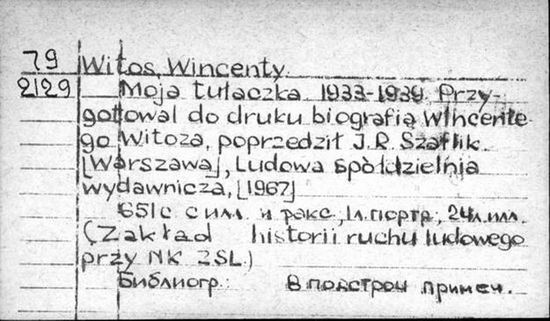 79 Witos, Wincenty.
2129 Moja tułaczka 1933-1939. Przy-
gotował do druku biografią Wincente-
go Witoza, poprzedził J.R. Szaflik.
[Warszawa], Ludowa spółdzielnia
wydawnicza, [1967]
651с с илл. и факс, 1л. портр, 24л. илл.
(Zakład historii ruchu ludowego
przy NK ZSL.)
Библиогр.: в подстроч примеч.